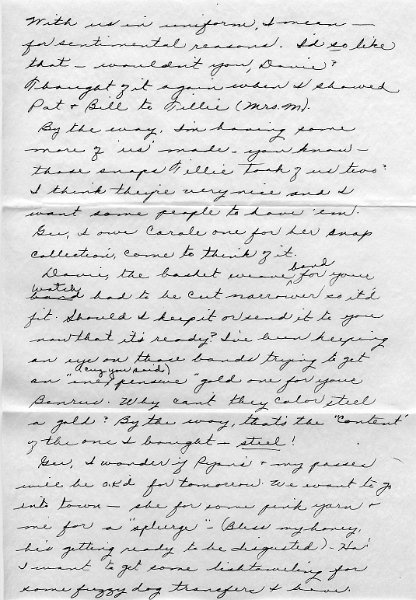 With us in uniform, I mean —
for sentimental reasons. I'd so like
that — wouldn't you, Davie?
Thought of it again when I showed
Pat + Bill to Tillie (Mrs. M).
By the way, I'm having some
more of "us" made — you know —
those snaps Tillie took of us two?
I think they're very nice and I
want some people to have 'em.
Gee, I owe Carole one for her snap
collection, come to think of it.
Davie, the basket weave band for your
watch band had to be cut narrower so it'd
fit. Should I keep it or send it to you
now that it's ready? I've been keeping
an eye on those bands trying to get
an "inexpensive" (cuz you said) gold one for your
Benrus. Why can't they color steel
a gold? By the way, that's the "content"
of the one I bought — steel!
Gee, I wonder if Ryan's + my passes
will be o.k'd for tomorrow. We want to go
into town — she for some pink yarn +
me for a "splurge" — (Bless my honey,
he's getting ready to be disgusted) — Ha!
I want to get some dishtoweling for
some fuzzy dog transfers I have.